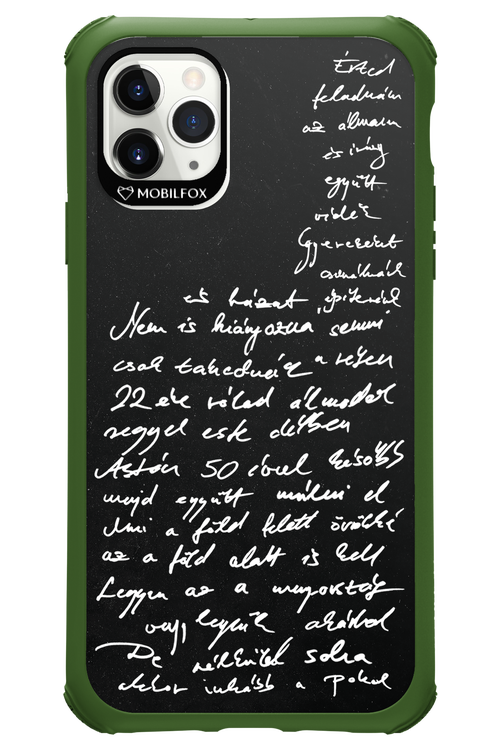 MOBILFOX
Érted
feladnám
az álmam
és irány
együtt
vidék
Gyerekeket
csinálnánk
és házat építenénk
Nem is hiányozna semmi
csak takednéz a résen
22 éve rólad álmodok
reggel este délben
Aztán 50 évvel később
majd együtt múlni el
Ami a föld felett örökké
az a föld alatt is kell
Legyen az a mennyország
vagy legyünk akárhol
De nélküled soha
akkor inkább a pokol